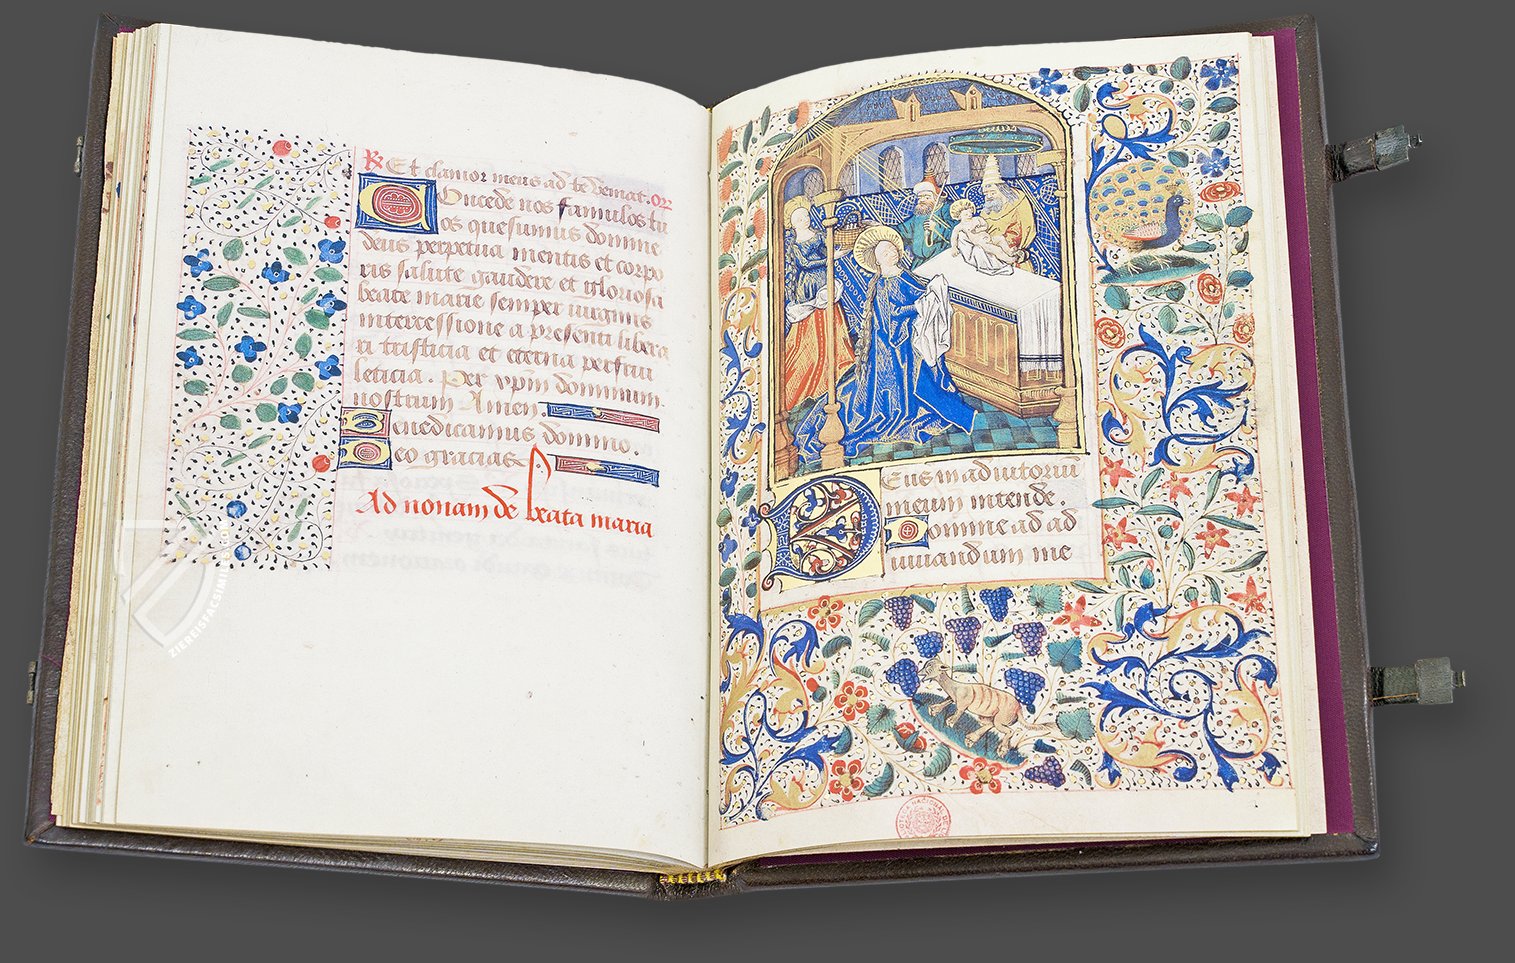 R Et clamor meus ad te veniat. or
Concede nos famulos tu
os quesumus domine
deus perpetua mentis et corpo
ris salute gaudere et gloriosa
beate marie semper virginis
intercessione a presenti libera
ri tristicia et eterna perfrui
leticia. Per xpm dominum
nostrum Amen.
Benedicamus domino.
Deo gracias
Ad nonam de beata maria
Deus in adiutoriu
meum intende
Domine ad ad
iuuandum me
ZIEREIS FACSIMILES